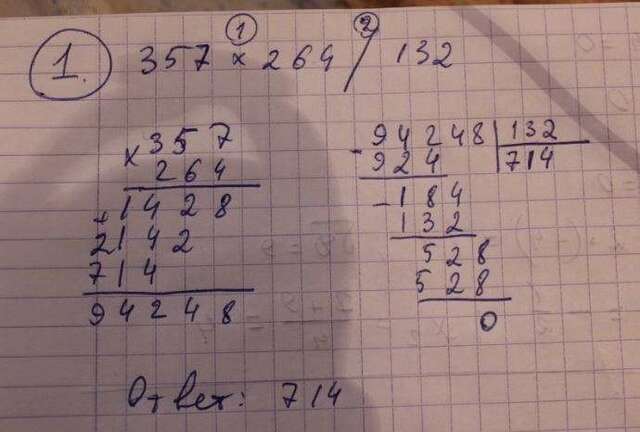 1. 357 × 264 / 132
1 2
× 357
264
+ 1428
2142
714
94248
- 94248 | 132
924 714
- 184
132
528
528
0
Ответ: 714